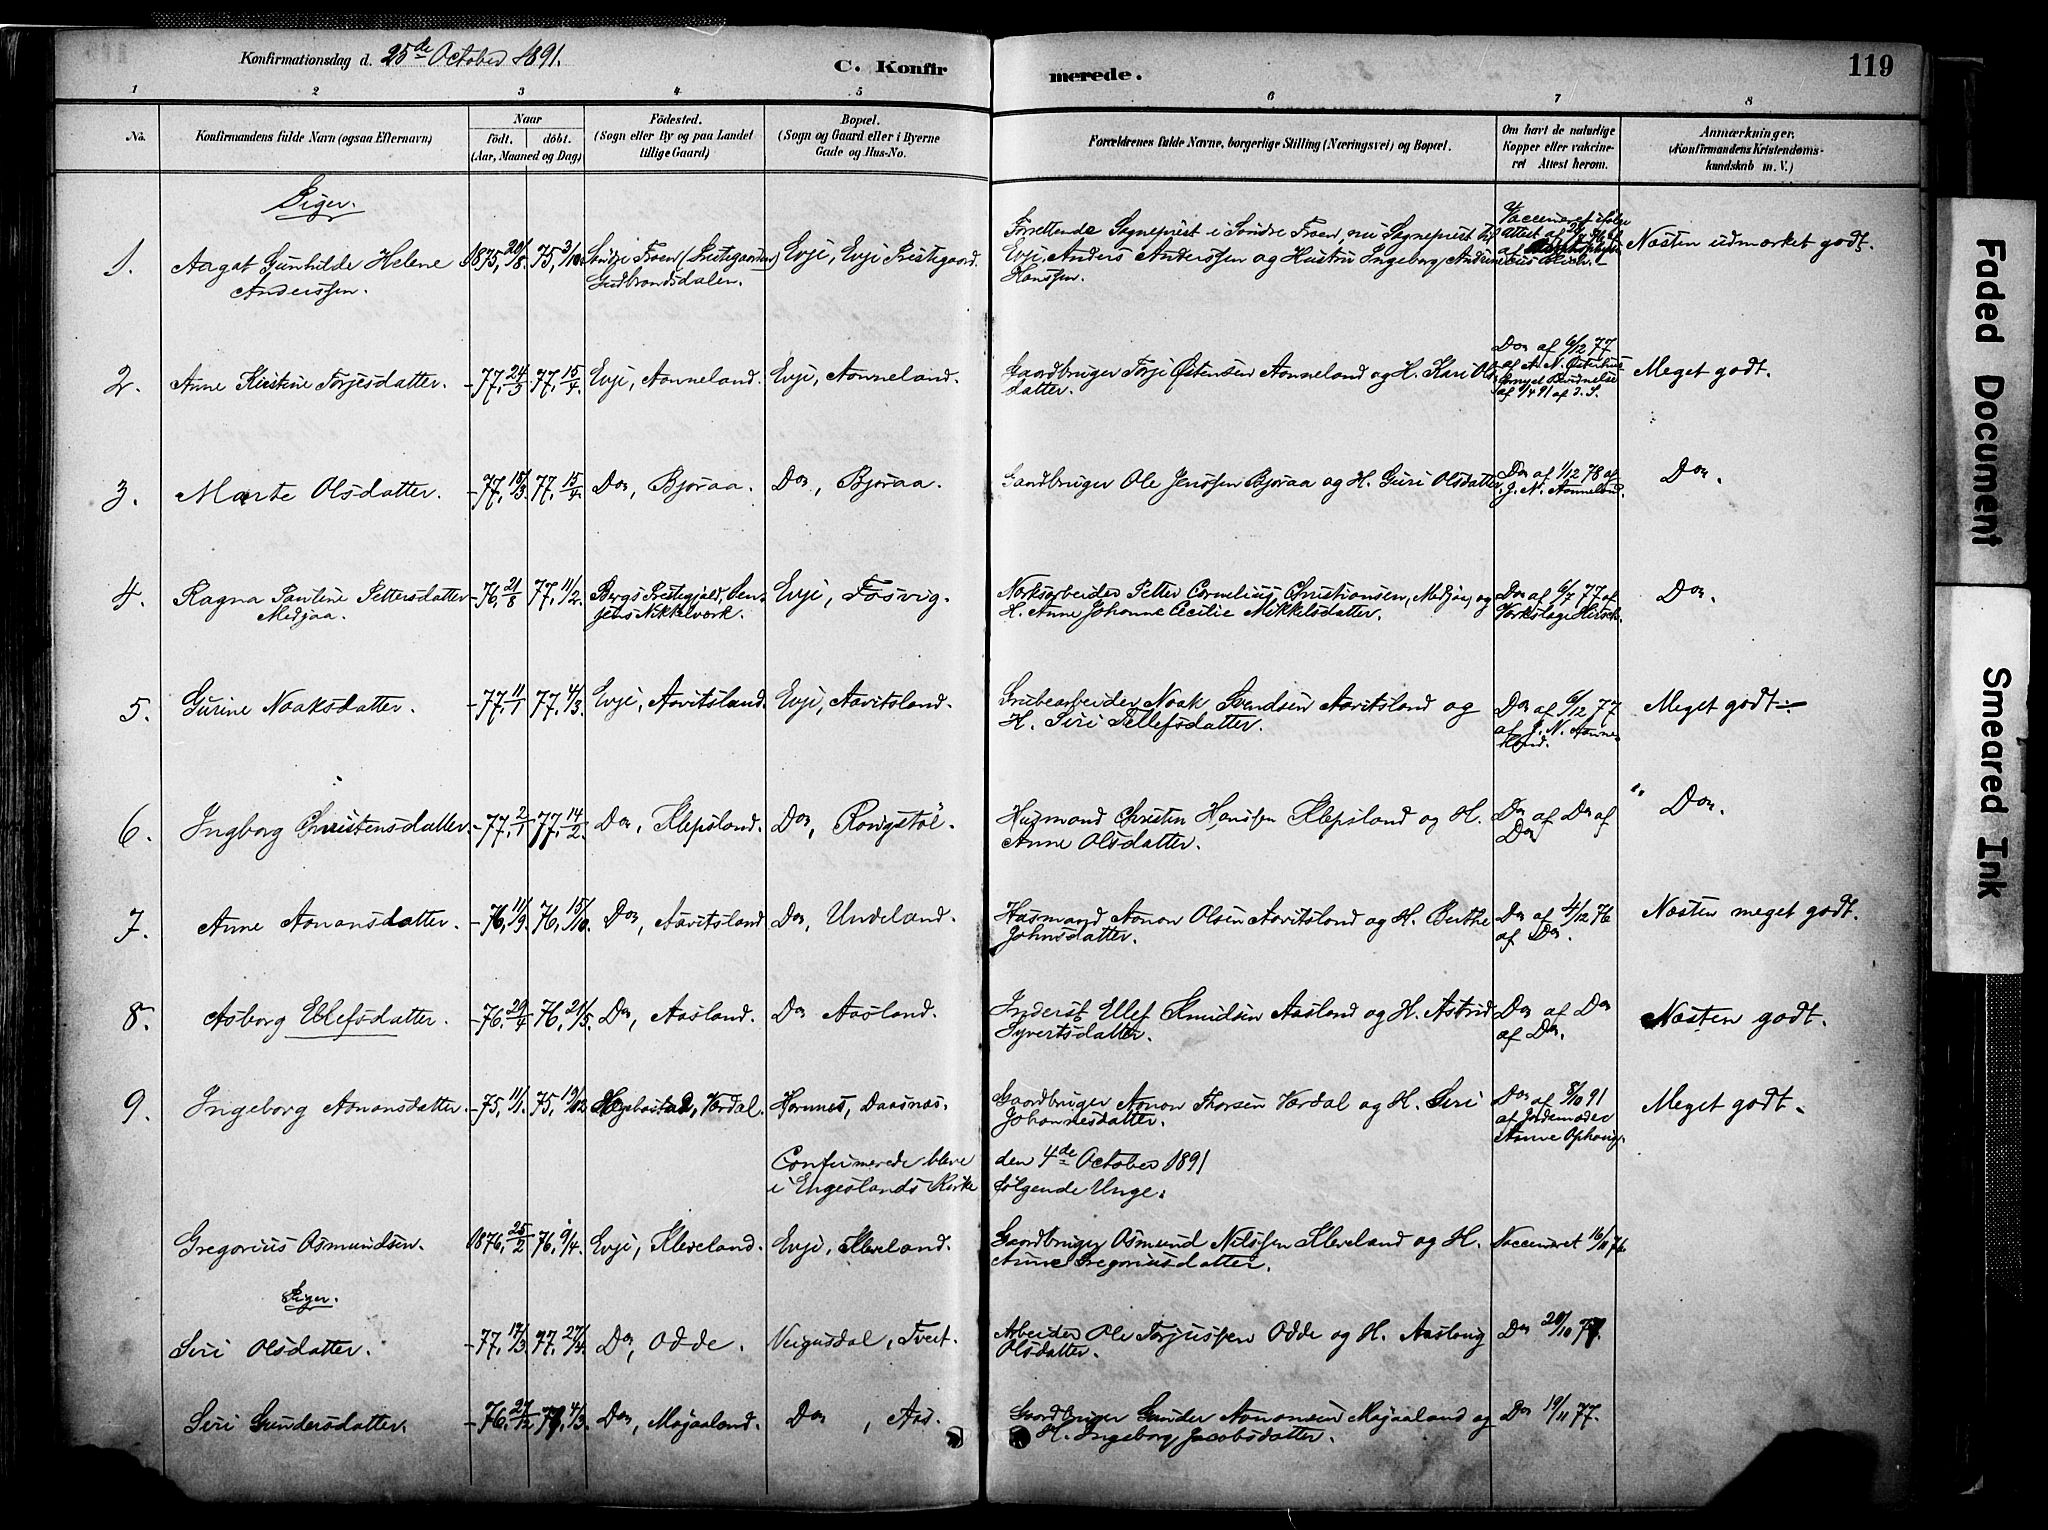 Konfirmationsdag d. 25de October 1891.
C. Konfir merede. 119
1 2 3 4 5 6 7 8
No. Konfirmandens fulde Navn (ogsaa Efternavn)
Naar födt. döbt. (Aar, Maaned og Dag)
Födested. (Sogn eller By og paa Landet tillige Gaard)
Bopæl. (Sogn og Gaard eller i Byerne Gade og Hus-No.
Forældrenes fulde Navne, borgerlige Stilling (Næringsvei) og Bopæl.
Om havt de naturlige Kopper eller vakcineret Attest herom.
Anmærkninger. (Konfirmandens Kristendomskundskab m. V.)
Piger.
1. Aagot Gunhilde Helene Anderssen. 1875, 20/8. 75, 3/10 Söndre Froen (Prestegaarden) Gudbrandsdalen. Evje, Evje Prestegaard.
Forrettende Sogneprest i Söndre Froen, nu Sogneprest til
Evje, Anders Anderssen og Hustru Ingeborg Andrine
Hanssen.
Vaccineret ifölge Attest af
Næsten udmærket godt.
2. Anne Kirstine Torjesdatter. -77, 24/3 77, 15/4. Evje, Aonneland. Evje, Aonneland.
Gaardbruger Torje Östensen Aonneland og H. Kari Olsdatter.
Do af 6/12 77
af A. N. Österhus
Fornyet Bevidnelse
af 9/4 91 af J. S.
Meget godt.
3. Marte Olsdatter. -77, 15/3 77, 15/4. Do, Bjoraa. Do, Bjoraa.
Gaardbruger Ole Jenssen Bjoraa og H. Guri Olsdatter
Do af 1/12 78 af
J. N. Aonneland.
Do.
4. Ragna Pauline Pettersdatter Medjaa. -76, 21/8 77, 11/2. Bergs Prestegjeld, Nikkelverk. Evje, Fosvig.
Verksarbeider Petter Cornelius Christiansen, Medjaa, og
H. Anne Johanne Cecilie Mikkelsdatter.
Do af 6/7 77 af
Verkslæge Hirsch.
Do.
5. Gurine Noaksdatter. -77, 11/1 77, 4/3. Evje, Aavitsland. Evje, Aavitsland.
Grubearbeider Noak Svendsen Aavitsland og
H. Siri Tellefsdatter.
Do af 6/12 77
af J. N. Aonneland.
Meget godt.
6. Ingborg Christensdatter. -77, 2/1 77, 14/2. Do, Klepsland. Do, Rongstöl.
Husmand Christen Hanssen Klepsland og H.
Anne Olsdatter.
Do af Do af
Do
Do.
7. Anne Aonansdatter. -76, 11/9. 76, 15/10. Do, Aavitsland Do, Undeland.
Husmand Aonon Olsen Aavitsland og H. Berthe
Johnsdatter.
Do af 4/12 76
af Do.
Næsten meget godt.
8. Asborg Ellefsdatter. -76, 20/4 76, 21/5. Do, Aasland. Do Aasland.
Inderst Ellef Knudsen Aasland og H. Astrid
Syvertsdatter.
Do af Do
af Do.
Næsten godt.
9. Ingeborg Aonansdatter. -75, 11/1. 75, 19/12. Hægebostad, Verdal. Hornnes, Daasnæs.
Gaardbruger Aonon Thorsen Verdal og H. Siri
Johannesdatter.
Do af 8/10 91
af Jordemoder
Anne Ophaug.
Meget godt.
Confirmerede bleve den 4de October 1891
i Engeslands Kirke følgende Unge:
Gregorius Osmundsen. 1876, 25/2 76, 9/4. Evje, Kleveland. Evje, Kleveland.
Gaardbruger Osmund Nilssen Kleveland og H.
Anne Gregoriusdatter.
Vaccineret 16/11 76.
Piger.
Siri Olsdatter. -77, 17/3 77, 27/4. Do, Odde. Veigusdal, Tveit.
Arbeider Ole Torjussen Odde og H. Aaslaug
Olsdatter.
Do 20/10 77.
Siri Gundersdatter. -76, 27/12. 77, 4/3. Do, Mojaaland. Do, Aas.
Gaardbruger Gunder Aonansen Mojaaland og
H. Ingeborg Jacobsdatter.
Do 19/11 77.
Faded Document
Smeared Ink